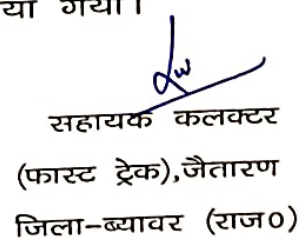 या गया।
सहायक कलक्टर
(फास्ट ट्रेक),जैतारण
जिला-ब्यावर (राज0)